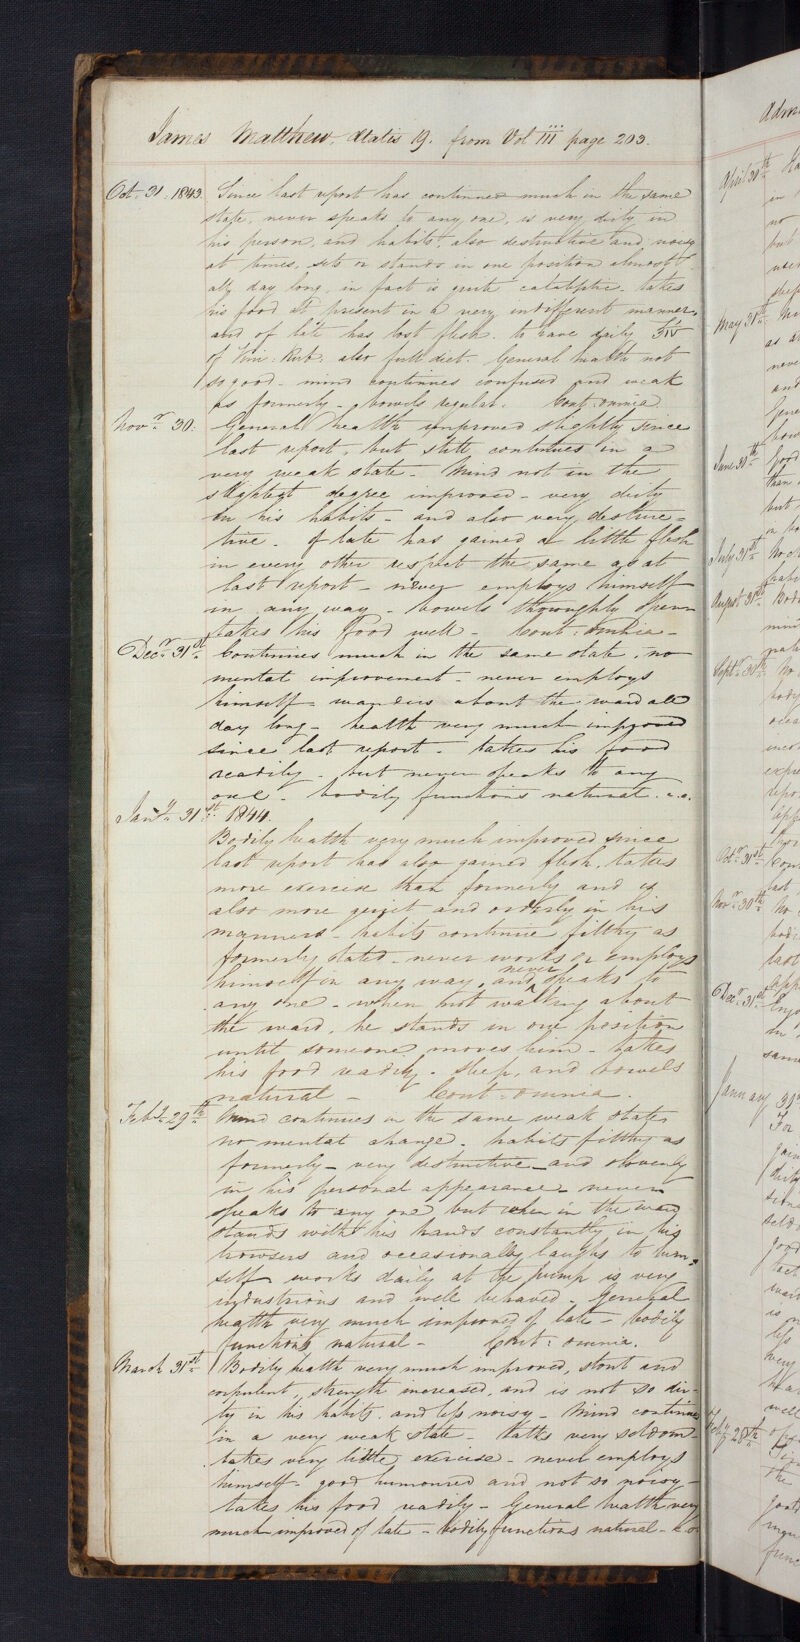 James Matthew, Ætatis 19. from Vol III page 203.
Oct. 31. 1843 Since last report has continued much in the same
state, never speaks to any one, is very dirty in
his person, and habits, also destructive and noisy
at times, sits or stands in one position almost
all day long, in fact is quite cataleptic. takes
his food at present in a very indifferent manner,
and of late has lost flesh. to have daily ℥iv
of Vini: Rub: also full diet. General health not
so good - mind continues confused and weak
as formerly - bowels regular. Cont: omnia.
Novr. 30. General health improved slightly since
last report, but still continues in a
very weak state - Mind not in the
slightest degree improved - very dirty
in his habits - and also very destruc=
tive - of late has gained a little flesh
in every other respect the same as at
last report - never employs himself
in any way - bowels thoroughly open
takes his food well - Cont: omnia -
Decr. 31st. Continues much in the same state, no
mental improvement - never employs
himself - wanders about the ward all
day long - health very much improved
since last report - takes his food
readily - but never speaks to any
one - bodily functions natural. c.o.
Jany. 31st. 1844.
Bodily health very much improved since
last report has also gained flesh. takes
more exercise than formerly and is
also more quiet and orderly in his
manners - habits continue filthy as
formerly stated - never works or employs
himself in any way, and never speaks to
any one - when not walking about
the ward, he stands in one position
until someone moves him - takes
his food readily - sleep, and bowels
natural - Cont: omnia.
Feby. 29th. Mind continues in the same weak state
no mental change. habits filthy as
formerly - very destructive - and slovenly
in his personal appearance - never
speaks to any one but when in the ward
stands with his hands constantly in his
trowsers and occasionally laughs to him=
self works daily at the pump is very
industrious and well behaved - General
health very much improved of late - bodily
functions natural - Cont: omnia.
March 31st. Bodily health very much improved, stout and
corpulent, strength increased, and is not so dir-
ty in his habits, and less noisy - Mind continues
in a very weak state - talks very seldom -
takes very little exercise - never employs
himself - good humoured and not so noisy -
takes his food readily - General health very
much improved of late - bodily functions natural - c.o
April 30th
in
no
but
May 31st
as
never
and
June 30th Good
than
but
July 31st
August 31st Bodi
mind
Sept. 30th No
bodily
Octr. 31st
last
Novr. 30th No
bodi
last
Decr. 31st Enjo
in
same
January 31st
For
gain
dirty
seldo
good
is
less
very
well
Feby. 28th
The
func